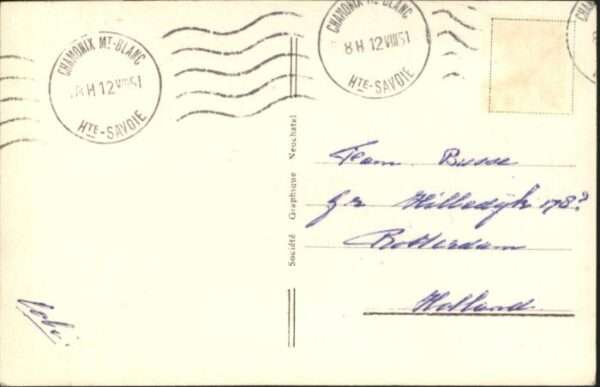 CHAMONIX MT-BLANC
8H 12 VIII 51
HTE-SAVOIE
CHAMONIX MT-BLANC
8H 12 VIII 51
HTE-SAVOIE
CHAM
Société Graphique Neuchatel
Team Busse
Gr Hilledijk 178?
Rotterdam
Holland